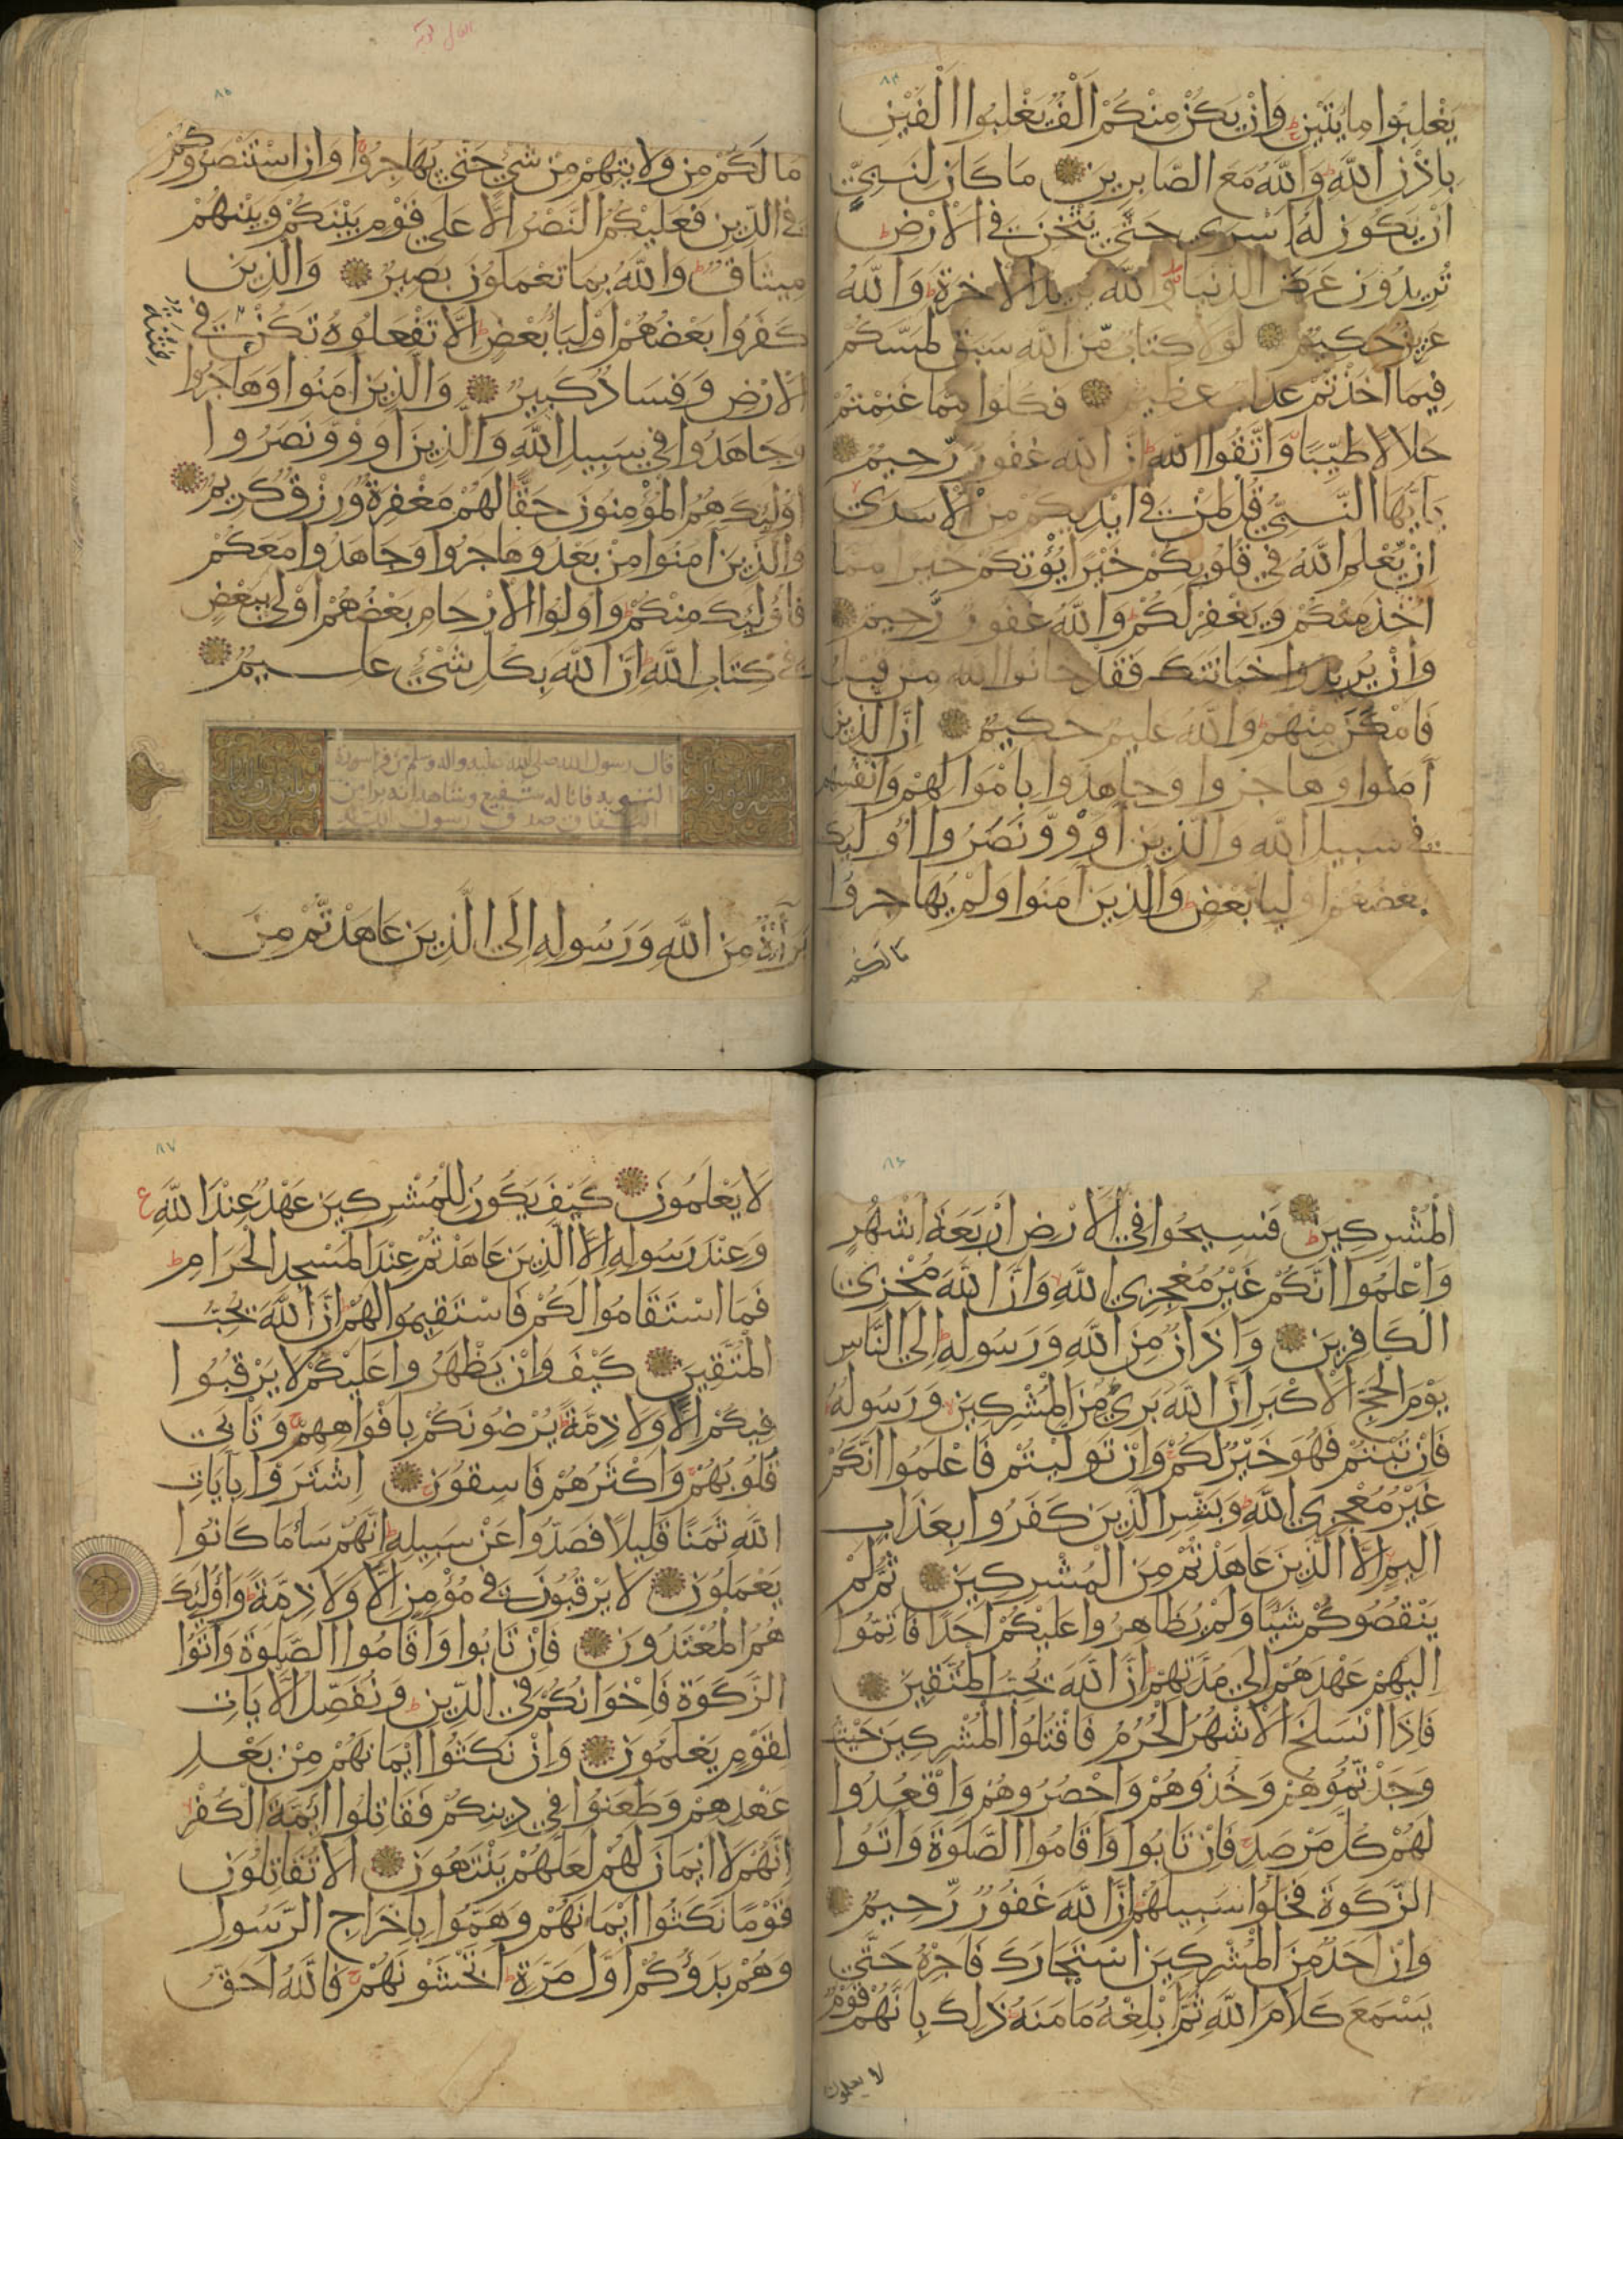 ٨٤
يَغْلِبُوا مِايَتَيْنِ وَاِنْ يَكُنْ مِنْكُمْ اَلْفٌ يَغْلِبُوا اَلْفَيْنِ
بِاِذْنِ اللّٰهِ وَاللّٰهُ مَعَ الصَّابِرِينَ مَا كَانَ لِنَبِيٍّ
اَنْ يَكُونَ لَهُ اَسْرٰى حَتّٰى يُثْخِنَ فِى الْاَرْضِ
تُرِيدُونَ عَرَضَ الدُّنْيَا وَاللّٰهُ يُرِيدُ الْاٰخِرَةَ وَاللّٰهُ
عَزِيزٌ حَكِيمٌ لَوْلَا كِتَابٌ مِّنَ اللّٰهِ سَبَقَ لَمَسَّكُمْ
فِيمَا اَخَذْتُمْ عَذَابٌ عَظِيمٌ فَكُلُوا مِمَّا غَنِمْتُمْ
حَلَالًا طَيِّبًا وَاتَّقُوا اللّٰهَ اِنَّ اللّٰهَ غَفُورٌ رَّحِيمٌ
يَاَيُّهَا النَّبِىُّ قُلْ لِمَنْ فِى اَيْدِيكُمْ مِنَ الْاَسْرٰى
اِنْ يَّعْلَمِ اللّٰهُ فِى قُلُوبِكُمْ خَيْرًا يُؤْتِكُمْ خَيْرًا مِمَّا
اُخِذَ مِنْكُمْ وَيَغْفِرْ لَكُمْ وَاللّٰهُ غَفُورٌ رَّحِيمٌ
وَاِنْ يُرِيدُوا خِيَانَتَكَ فَقَدْ خَانُوا اللّٰهَ مِنْ قَبْلُ
فَاَمْكَنَ مِنْهُمْ وَاللّٰهُ عَلِيمٌ حَكِيمٌ اِنَّ الَّذِينَ
اٰمَنُوا وَهَاجَرُوا وَجَاهَدُوا بِاَمْوَالِهِمْ وَاَنْفُسِهِمْ
فِى سَبِيلِ اللّٰهِ وَالَّذِينَ اٰوَوْا وَّنَصَرُوا اُولٰٓئِكَ
بَعْضُهُمْ اَوْلِيَاءُ بَعْضٍ وَالَّذِينَ اٰمَنُوا وَلَمْ يُهَاجِرُوا
مالكم
٨٥
مَا لَكُمْ مِنْ وَلَايَتِهِمْ مِنْ شَىْءٍ حَتّٰى يُهَاجِرُوا وَاِنِ اسْتَنْصَرُوكُمْ
فِى الدِّينِ فَعَلَيْكُمُ النَّصْرُ اِلَّا عَلٰى قَوْمٍ بَيْنَكُمْ وَبَيْنَهُمْ
مِيثَاقٌ وَاللّٰهُ بِمَا تَعْمَلُونَ بَصِيرٌ وَالَّذِينَ
كَفَرُوا بَعْضُهُمْ اَوْلِيَاءُ بَعْضٍ اِلَّا تَفْعَلُوهُ تَكُنْ فِى
فِتْنَةٌ
الْاَرْضِ وَفَسَادٌ كَبِيرٌ وَالَّذِينَ اٰمَنُوا وَهَاجَرُوا
وَجَاهَدُوا فِى سَبِيلِ اللّٰهِ وَالَّذِينَ اٰوَوْا وَّنَصَرُوا
اُولٰٓئِكَ هُمُ الْمُؤْمِنُونَ حَقًّا لَهُمْ مَغْفِرَةٌ وَرِزْقٌ كَرِيمٌ
وَالَّذِينَ اٰمَنُوا مِنْ بَعْدُ وَهَاجَرُوا وَجَاهَدُوا مَعَكُمْ
فَاُولٰٓئِكَ مِنْكُمْ وَاُولُوا الْاَرْحَامِ بَعْضُهُمْ اَوْلٰى بِبَعْضٍ
فِى كِتَابِ اللّٰهِ اِنَّ اللّٰهَ بِكُلِّ شَىْءٍ عَلِيمٌ
قال رسول الله صلى الله عليه واله وسلم من قرا سورة
التوبة فانا له شفيع وشاهد انه برا من
النفاق صدق رسول الله
بَرَاءَةٌ مِنَ اللّٰهِ وَرَسُولِهِ اِلَى الَّذِينَ عَاهَدْتُّمْ مِنَ
٨٦
الْمُشْرِكِينَ فَسِيحُوا فِى الْاَرْضِ اَرْبَعَةَ اَشْهُرٍ
وَاعْلَمُوا اَنَّكُمْ غَيْرُ مُعْجِزِى اللّٰهِ وَاَنَّ اللّٰهَ مُخْزِى
الْكَافِرِينَ وَاَذَانٌ مِنَ اللّٰهِ وَرَسُولِهِ اِلَى النَّاسِ
يَوْمَ الْحَجِّ الْاَكْبَرِ اَنَّ اللّٰهَ بَرِىءٌ مِنَ الْمُشْرِكِينَ وَرَسُولُهُ
فَاِنْ تُبْتُمْ فَهُوَ خَيْرٌ لَكُمْ وَاِنْ تَوَلَّيْتُمْ فَاعْلَمُوا اَنَّكُمْ
غَيْرُ مُعْجِزِى اللّٰهِ وَبَشِّرِ الَّذِينَ كَفَرُوا بِعَذَابٍ
اَلِيمٍ اِلَّا الَّذِينَ عَاهَدْتُمْ مِنَ الْمُشْرِكِينَ ثُمَّ لَمْ
يَنْقُصُوكُمْ شَيْئًا وَلَمْ يُظَاهِرُوا عَلَيْكُمْ اَحَدًا فَاَتِمُّوا
اِلَيْهِمْ عَهْدَهُمْ اِلٰى مُدَّتِهِمْ اِنَّ اللّٰهَ يُحِبُّ الْمُتَّقِينَ
فَاِذَا انْسَلَخَ الْاَشْهُرُ الْحُرُمُ فَاقْتُلُوا الْمُشْرِكِينَ حَيْثُ
وَجَدْتُّمُوهُمْ وَخُذُوهُمْ وَاحْصُرُوهُمْ وَاقْعُدُوا
لَهُمْ كُلَّ مَرْصَدٍ فَاِنْ تَابُوا وَاَقَامُوا الصَّلٰوةَ وَاٰتَوُا
الزَّكٰوةَ فَخَلُّوا سَبِيلَهُمْ اِنَّ اللّٰهَ غَفُورٌ رَّحِيمٌ
وَاِنْ اَحَدٌ مِنَ الْمُشْرِكِينَ اسْتَجَارَكَ فَاَجِرْهُ حَتّٰى
يَسْمَعَ كَلَامَ اللّٰهِ ثُمَّ اَبْلِغْهُ مَاْمَنَهُ ذٰلِكَ بِاَنَّهُمْ قَوْمٌ
لا يعلمون
٨٧
لَا يَعْلَمُونَ كَيْفَ يَكُونُ لِلْمُشْرِكِينَ عَهْدٌ عِنْدَ اللّٰهِ
وَعِنْدَ رَسُولِهِ اِلَّا الَّذِينَ عَاهَدْتُمْ عِنْدَ الْمَسْجِدِ الْحَرَامِ
فَمَا اسْتَقَامُوا لَكُمْ فَاسْتَقِيمُوا لَهُمْ اِنَّ اللّٰهَ يُحِبُّ
الْمُتَّقِينَ كَيْفَ وَاِنْ يَظْهَرُوا عَلَيْكُمْ لَا يَرْقُبُوا
فِيكُمْ اِلًّا وَلَا ذِمَّةً يُرْضُونَكُمْ بِاَفْوَاهِهِمْ وَتَاْبٰى
قُلُوبُهُمْ وَاَكْثَرُهُمْ فَاسِقُونَ اِشْتَرَوْا بِاٰيَاتِ
اللّٰهِ ثَمَنًا قَلِيلًا فَصَدُّوا عَنْ سَبِيلِهِ اِنَّهُمْ سَاءَ مَا كَانُوا
يَعْمَلُونَ لَا يَرْقُبُونَ فِى مُؤْمِنٍ اِلًّا وَلَا ذِمَّةً وَاُولٰٓئِكَ
هُمُ الْمُعْتَدُونَ فَاِنْ تَابُوا وَاَقَامُوا الصَّلٰوةَ وَاٰتَوُا
الزَّكٰوةَ فَاِخْوَانُكُمْ فِى الدِّينِ وَنُفَصِّلُ الْاٰيَاتِ
لِقَوْمٍ يَعْلَمُونَ وَاِنْ نَكَثُوا اَيْمَانَهُمْ مِنْ بَعْدِ
عَهْدِهِمْ وَطَعَنُوا فِى دِينِكُمْ فَقَاتِلُوا اَئِمَّةَ الْكُفْرِ
اِنَّهُمْ لَا اَيْمَانَ لَهُمْ لَعَلَّهُمْ يَنْتَهُونَ اَلَا تُقَاتِلُونَ
قَوْمًا نَكَثُوا اَيْمَانَهُمْ وَهَمُّوا بِاِخْرَاجِ الرَّسُولِ
وَهُمْ بَدَؤُكُمْ اَوَّلَ مَرَّةٍ اَتَخْشَوْنَهُمْ فَاللّٰهُ اَحَقُّ